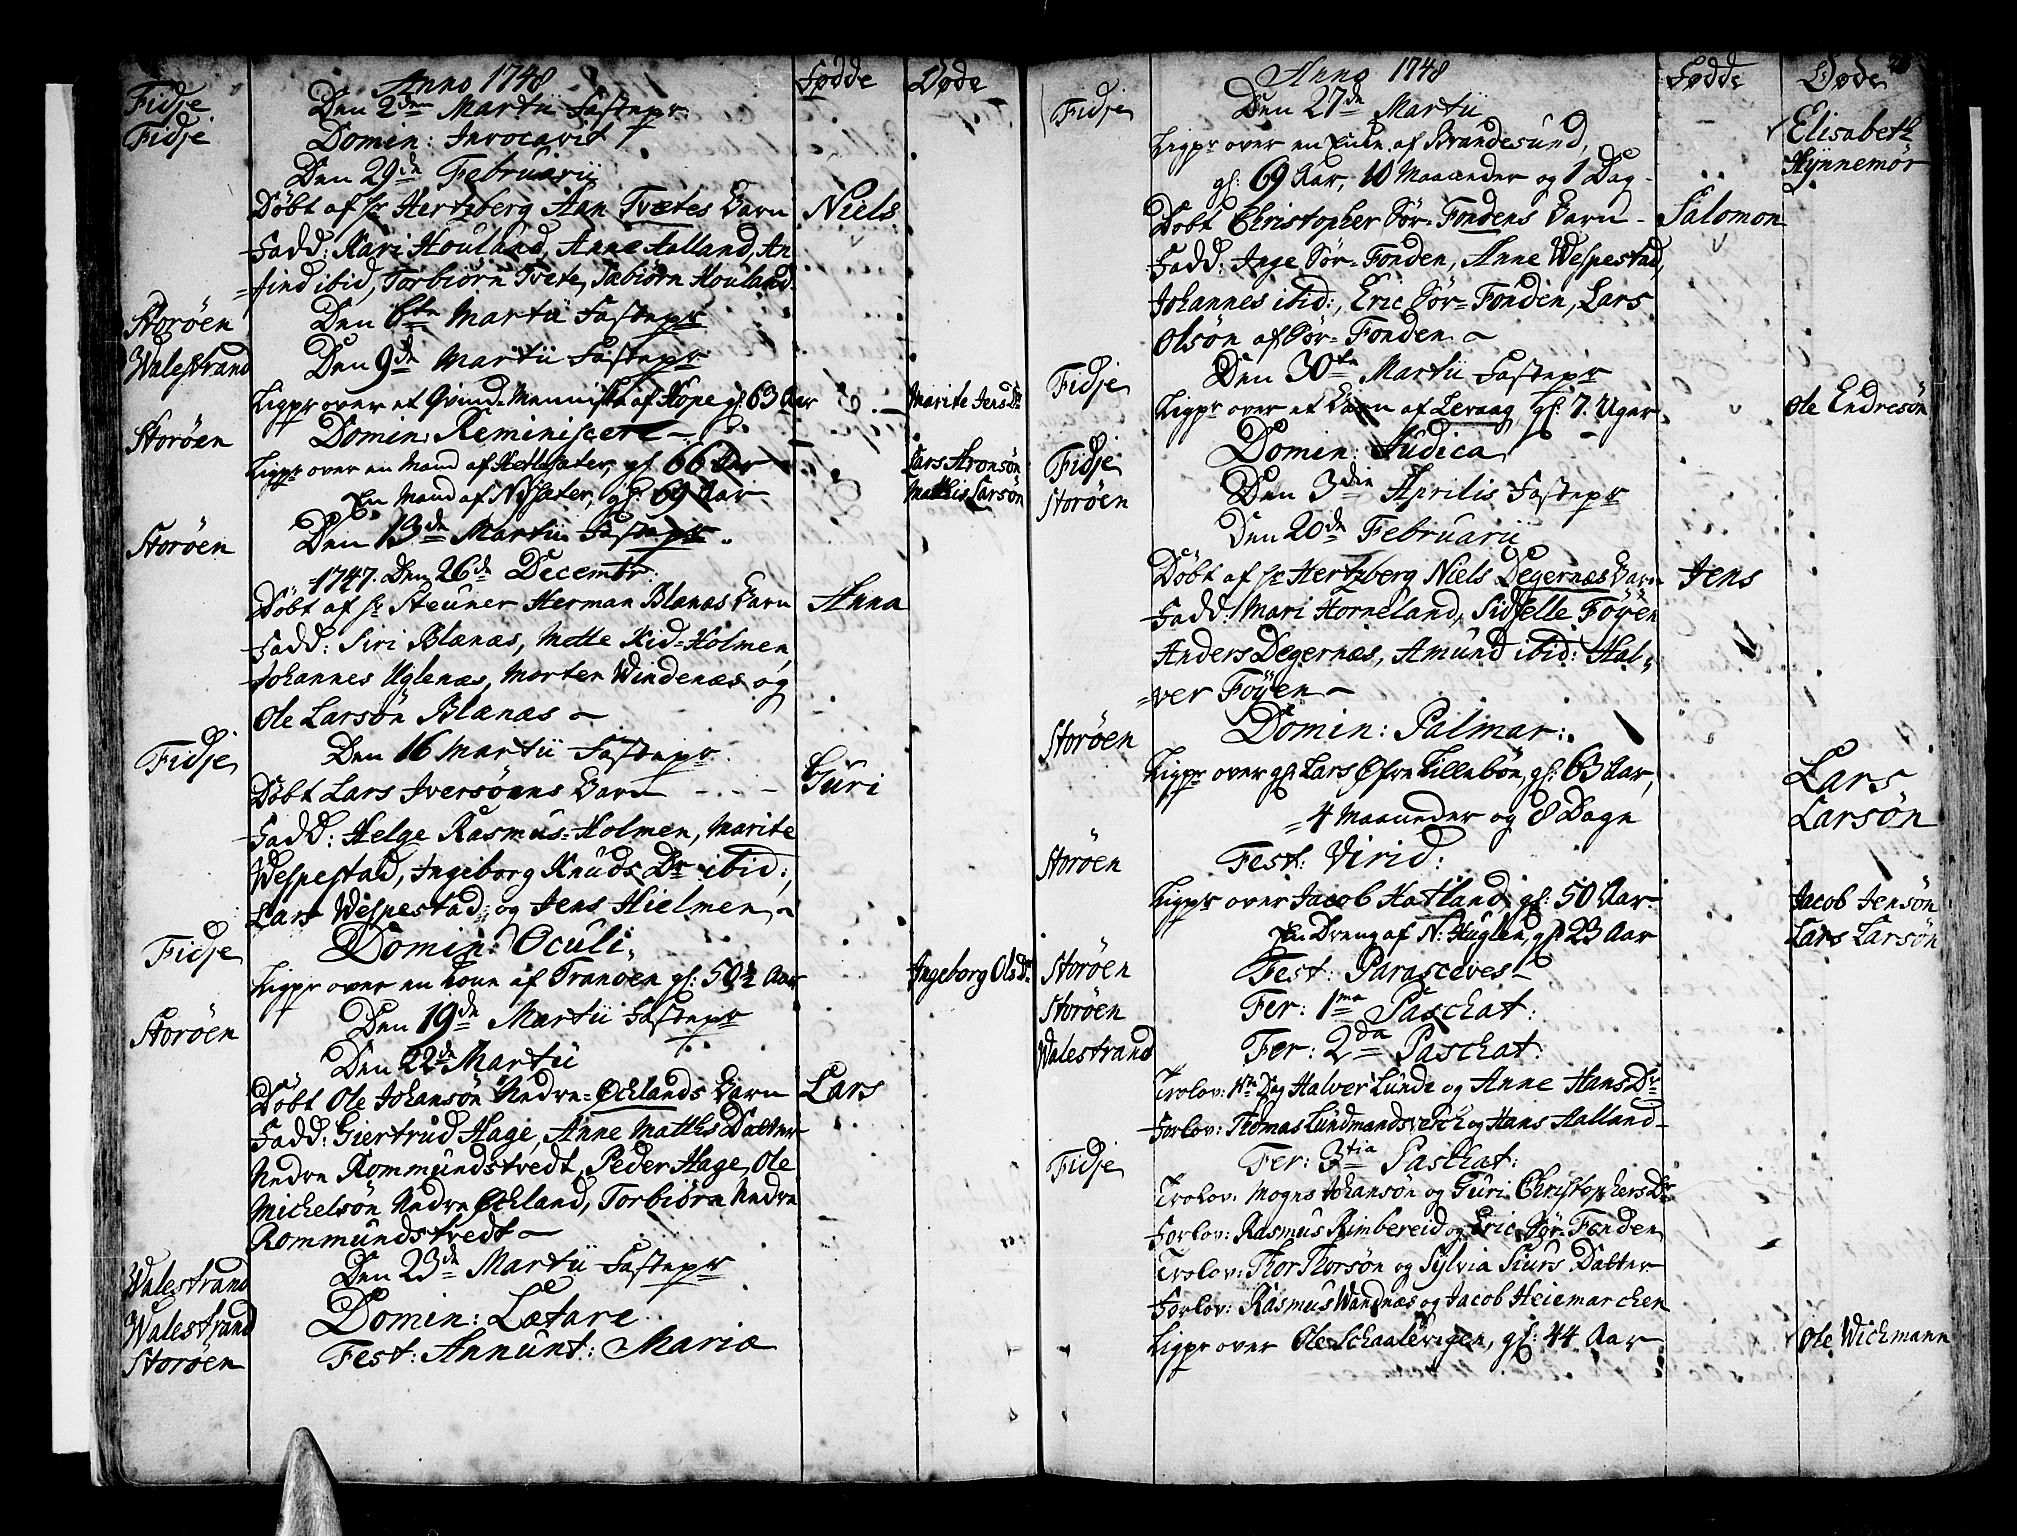 Anno 1748 Fødde Døde
Fidje Den 2den Martii Fastepr
Fidje Domin: Invocavit
Den 29de Februarii
Døbt af hr Hertzberg Aan Tvetes Barn Niels
Fadd: Kari Houland, Anne Aalland, An
=find ibid, Torbiørn Tvete, Sæbiørn Houland.
Storøen Den 6te Martii Fastepr
Walestrand Den 9de Martii Fastepr
Ligpr over et Qvind-Menniske af Kope gl: 63 Aar Marite Jens Dr
Storøen Domin: Reminiscere
Ligpr over en Mand af Hettesater, gl. 66 Aar Lars Aronsøn
En Mand af Nysater, gl: 69 Aar Mathis Larsøn
Storøen Den 13de Martii Fastepr
1747. Den 26de Decembr:
Døbt af hr Steuner Herman Blanæs Barn Anna
Fadd: Siri Blænæs, Mette Kid-Holmen,
Johannes Uglenæs, Morten Windenæs og
Ole Larsøn Blænæs
Fidje Den 16 Martii Fastepr.
Døbt Lars Iversøens Barn Guri
Fadd: Helge Rasmus-Holmen, Marite
Wespestad, Ingeborg Knuds Dr ibid:,
Lars Wespestad, og Jens Hielmen
Fidje Domin: Oculi
Ligpr over en Kone af Tranøen gl: 50½ Aar Ingeborg Ols Dr
Storøen Den 19de Martii Fastepr
Den 22de Martii
Døbt Ole Johansøn Nedre-Øcklands Barn Lars
Fadd: Giertrud Hage, Anne Mathis Datter
Nedre Rommundstvedt, Peder Hage, Ole
Michelsøn Nedre Øckland, Torbiørn Nedre
Rommundstvedt
Walestrand Den 23de Martii Fastepr
Walestrand Domin: Lætare
Storøen Fest: Annunt: Mariæ
Anno 1748 Fødde Døde
Fidje Den 27de Martii
Ligpr over en Enke af Brandesund, Elisabeth
gl: 69 Aar, 10 Maaneder og 1 Dag Hynnemør
Døbt Christopher Sør-Fondens Barn Salomon
Fadd: Inge Sør-Fonden, Anne Wespestad,
Johannes ibid:, Eric Sør-Fonden, Lars
Olsøn af Sør-Fonden
Fidje Den 30te Martii Fastepr
Ligpr over et Barn af Leraag, gl: 7. Uger Ole Endresøn
Fidje Domin: Judica
Storøen Den 3die Aprilis Fastepr
Den 20de Februarii
Døbt af hr Hertzberg Niels Degernæs Barn Jens
Fadd: Mari Horneland, Sidselle Føyen
Anders Degernæs, Amund ibid: Hal-
=ver Føyen
Storøen Domin: Palmar:
Ligpr over gl: Lars Øfre Lillebøn, gl: 63 Aar, Lars
4 Maaneder og 8 Dage Larsøn
Storøen Fest: Virid:
Ligpr over Jacob Hatland gl: 50 Aar. Jacob Jensøn
En Dreng af N: Huglen, gl: 23 Aar Lars Larsøn
Storøen Fest: Parasceves
Storøen Fer: 1ma Paschat:
Walestrand Fer: 2da Paschat:
Trolov: Halver Lunde og Anne Hans Dr
Forlov: Thomas Lundmandsverch og Hans Aalland
Fidje Fer: 3tia Paschat:
Trolov: Mogns Johansøn og Guri Christophers Dr
Forlov: Rasmus Rimbereid og Eric Sør-Fonden
Trolov: Thor Thorsøn og Sylvia Siurs Datter
Forlov: Rasmus Wandnæs og Jacob Heiemarchen
Ligpr over Ole Schaalevigen, gl: 44 Aar Ole Wichmann